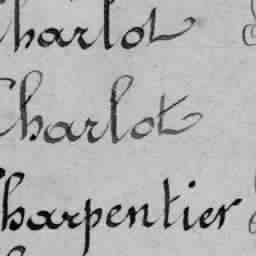 Charlot
Charlot
Charpentier